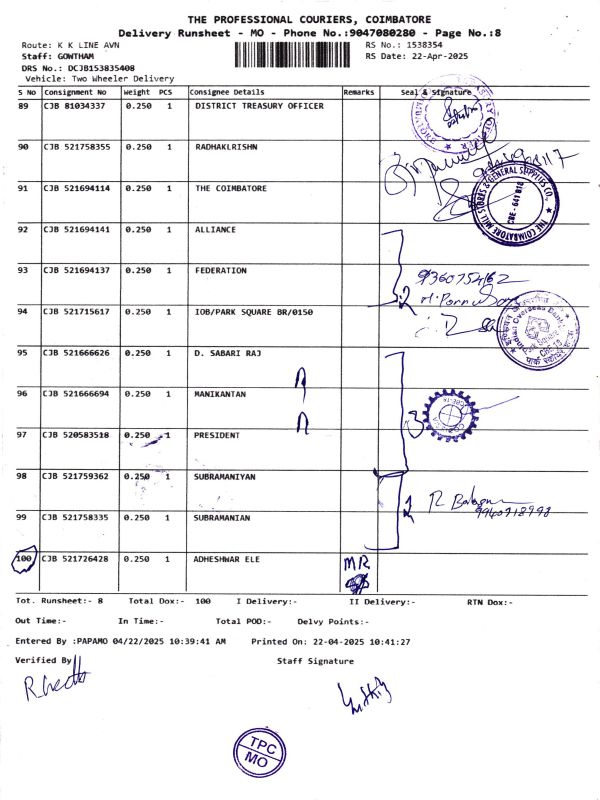 THE PROFESSIONAL COURIERS, COIMBATORE
Delivery Runsheet - MO - Phone No.:9047080280 - Page No.:8
Route: K K LINE AVN RS No.: 1538354
Staff: GOWTHAM RS Date: 22-Apr-2025
DRS No.: DCJB153835408
Vehicle: Two Wheeler Delivery
S No Consignment No Weight PCS Consignee Details Remarks Seal & Signature
89 CJB 81034337 0.250 1 DISTRICT TREASURY OFFICER
90 CJB 521758355 0.250 1 RADHAKLRISHN
91 CJB 521694114 0.250 1 THE COIMBATORE
THE COIMBATORE MILL STORES & GENERAL SUPPLIES CO.
CBE - 641 018
92 CJB 521694141 0.250 1 ALLIANCE
93 CJB 521694137 0.250 1 FEDERATION
9360754162
94 CJB 521715617 0.250 1 IOB/PARK SQUARE BR/0150
Indian Overseas Bank
95 CJB 521666626 0.250 1 D. SABARI RAJ
96 CJB 521666694 0.250 1 MANIKANTAN
3
97 CJB 520583518 0.250 1 PRESIDENT
98 CJB 521759362 0.250 1 SUBRAMANIYAN
2 R Balagan
9940718998
99 CJB 521758335 0.250 1 SUBRAMANIAN
100 CJB 521726428 0.250 1 ADHESHWAR ELE MR
Tot. Runsheet:- 8 Total Dox:- 100 I Delivery:- II Delivery:- RTN Dox:-
Out Time:- In Time:- Total POD:- Delvy Points:-
Entered By :PAPAMO 04/22/2025 10:39:41 AM Printed On: 22-04-2025 10:41:27
Verified By Staff Signature
TPC
MO